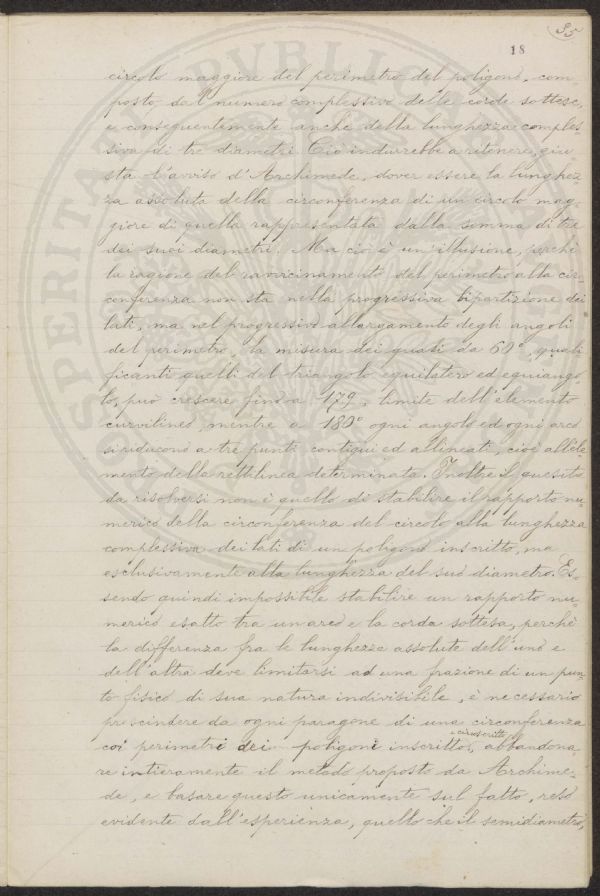 85
18
circolo maggiore del perimetro del poligono, com-
posto dal numero complessivo delle corde sottese,
e conseguentemente anche della lunghezza comples
siva di tre diametri. Ciò indurrebbe a ritenere, giu-
sta l'avviso d'Archimede, dover essere la lunghez-
za assoluta della circonferenza di un circolo mag-
giore di quella rappresentata dalla somma di tre
dei suoi diametri. Ma ciò è un'illusione, perchè
la ragione del ravvicinamento del perimetro alla cir-
conferenza non sta nella progressiva bipartizione dei
lati, ma nel progressivo allargamento degli angoli
del perimetro, la misura dei quali da 60°, quali
ficanti quelli del triangolo equilatero ed equiango-
lo, può crescere fino a 179, limite dell'elemento
curvilineo, mentre a 180° ogni angolo ed ogni arco
si riducono a tre punti contigui ed allineati, cioè all'ele
mento della rettilinea determinata. Inoltre il quesito
da risolversi non è quello di stabilire il rapporto nu-
merico della circonferenza del circolo alla lunghezza
complessiva dei lati di un poligono inscritto, ma
esclusivamente alla lunghezza del suo diametro. Es-
sendo quindi impossibile stabilire un rapporto nu-
merico esatto tra un arco e la corda sottesa, perchè
la differenza fra le lunghezze assolute dell'uno e
dell'altra deve limitarsi ad una frazione di un pun-
to fisico di sua natura indivisibile, è necessario
prescindere da ogni paragone di una circonferenza
coi perimetri dei poligoni inscritti e circoscritti, abbandona-
re intieramente il metodo proposto da Archime-
de, e basare questo unicamente sul fatto, reso
evidente dall'esperienza, quello che il semidiametro,